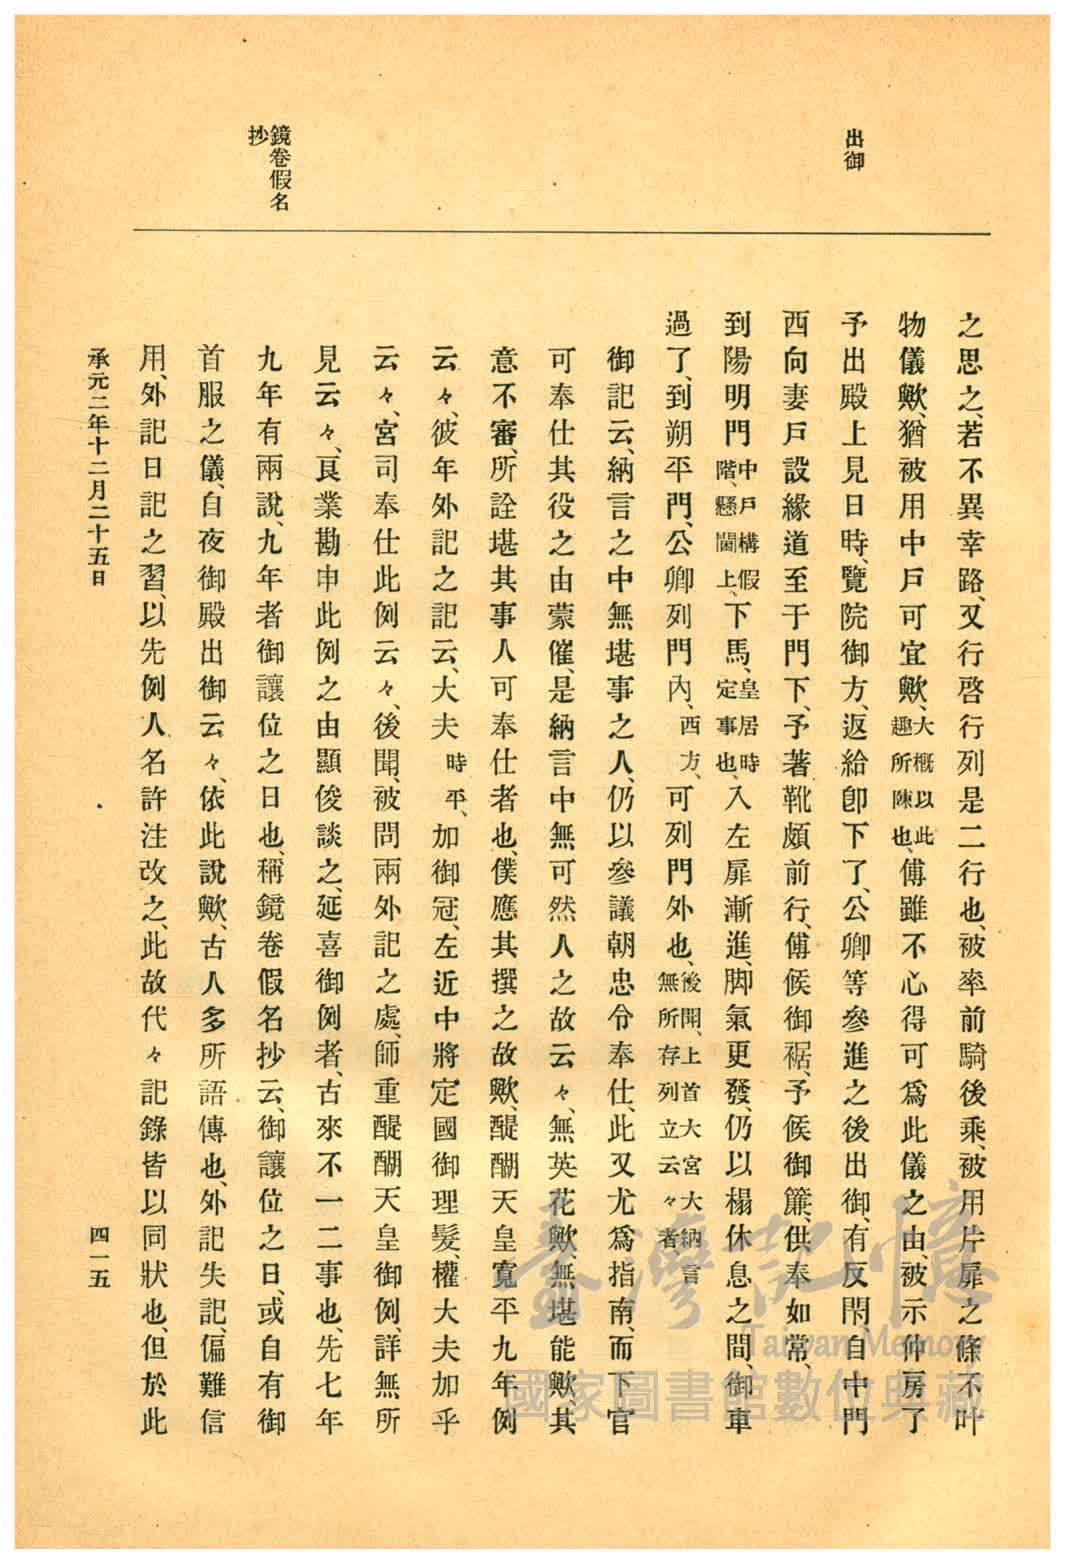 出御
鏡卷假名
抄
之思之、若不異幸路、又行啓行列是二行也、被率前騎後乘、被用片扉之條不叶
物儀歟、猶被用中戶可宜歟、大概以此趣所陳也、傅雖不心得可爲此儀之由、被示仲房了
予出殿上見日時、覽院御方、返給卽下了、公卿等參進之後出御、有反閇、自中門
西向妻戶設緣道至于門下、予著靴頗前行、傅候御裾、予候御簾、供奉如常、
到陽明門中戶構假階、懸閾上、下馬、皇居時定事也、入左扉漸進、脚氣更發、仍以榻休息之間、御車
過了、到朔平門、公卿列門內、西方、可列門外也、後聞、上首大宮大納言無所存列立云々者
御記云、納言之中無堪事之人、仍以參議朝忠令奉仕、此又尤爲指南、而下官
可奉仕其役之由蒙催、是納言中無可然人之故云々、無英花歟、無堪能歟、其
意不審、所詮堪其事人可奉仕者也、僕應其撰之故歟、醍醐天皇寬平九年例
云々、彼年外記之記云、大夫時平、加御冠、左近中將定國御理髮、權大夫加乎
云々、宮司奉仕此例云々、後聞、被問兩外記之處、師重醍醐天皇御例、詳無所
見云々、良業勘申此例之由顯俊談之、延喜御例者、古來不一二事也、先七年
九年有兩說、九年者御讓位之日也、稱鏡卷假名抄云、御讓位之日、或自有御
首服之儀、自夜御殿出御云々、依此說歟、古人多所語傳也、外記失記、偏難信
用、外記日記之習、以先例人名許注改之、此故代々記錄皆以同狀也、但於此
承元二年十二月二十五日
四一五
臺灣記憶
Taiwan Memory
國家圖書館數位典藏